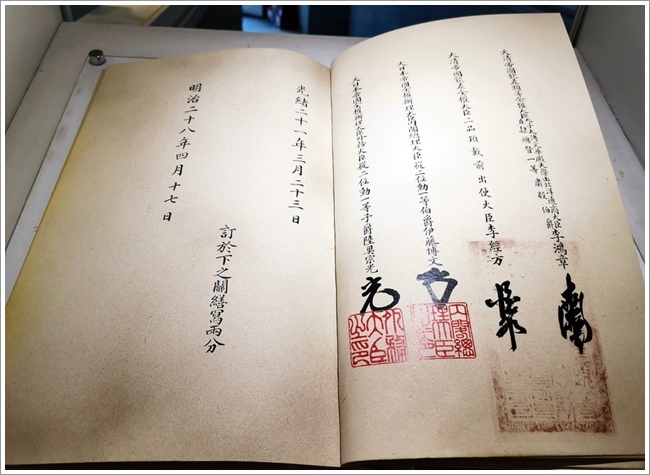 大清帝國欽差頭等全權大臣太子太傅文華殿大學士北洋通商大臣直隸總督一等肅毅伯爵李鴻章
大清帝國欽差全權大臣二品頂戴前出使大臣李經方
大日本帝國全權辦理大臣內閣總理大臣從二位勳一等伯爵伊藤博文
大日本帝國全權辦理大臣外務大臣從二位勳一等子爵陸奧宗光
外務大臣之印
光緒二十一年三月二十三日
明治二十八年四月十七日
訂於下之關繕寫兩分